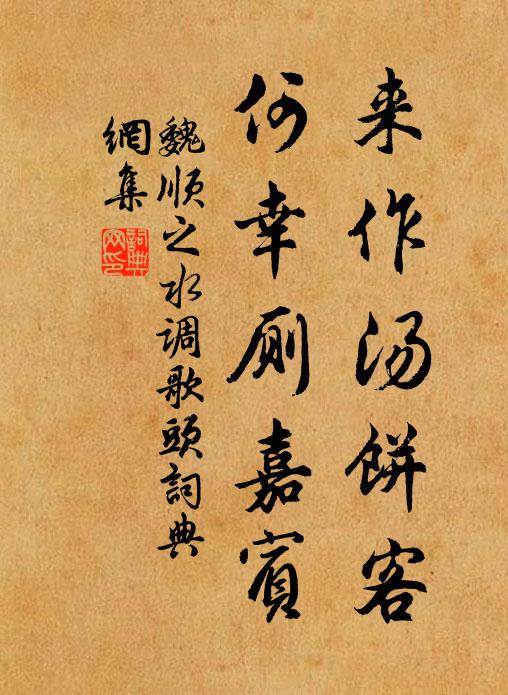 来作汤餅客
何幸厕嘉賓
魏順之水调歌頭詞典
網集
詞典
网印